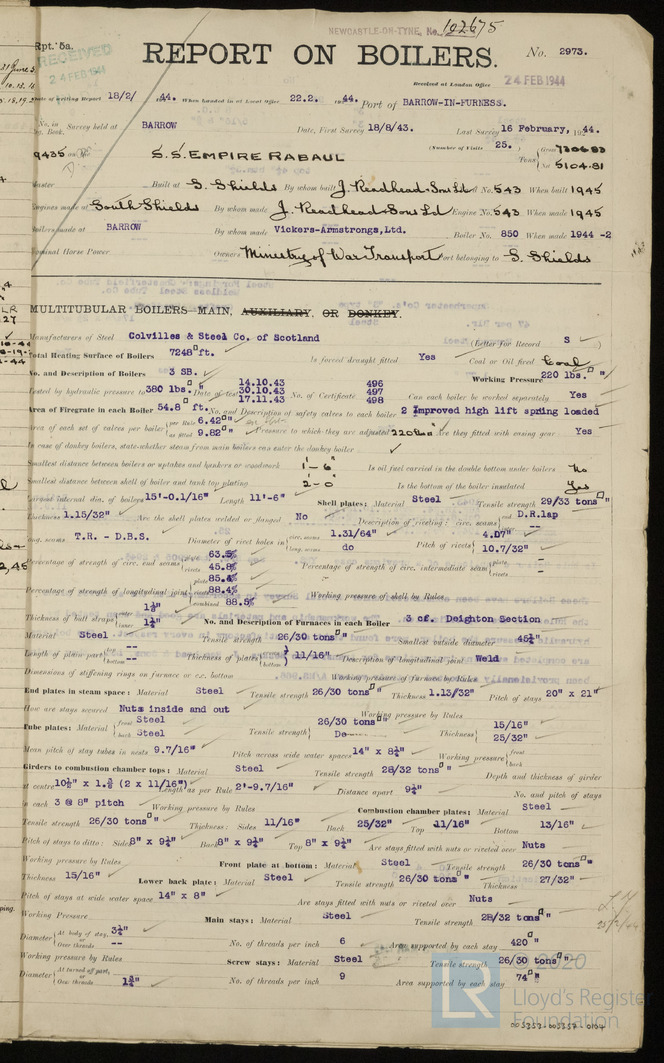 NEWCASTLE-ON-TYNE, No. 102675
Rpt. 5a.
RECEIVED
24 FEB 1944
REPORT ON BOILERS.
No. 2973.
Received at London Office 24 FEB 1944
Date of Writing Report 18/2/ 1944. When handed in at Local Office 22.2. 1944. Port of BARROW-IN-FURNESS.
No. in Reg. Book. Survey held at BARROW Date, First Survey 18/8/43. Last Survey 16 February, 1944.
(Number of Visits 25. )
9435 on the S.S. EMPIRE RABAUL Tons Gross 7306.83 Net 5104.81
Master Built at S. Shields By whom built J. Readhead & Sons Ld Yard No. 543 When built 1945
Engines made at South Shields By whom made J. Readhead & Sons Ld Engine No. 543 When made 1945
Boilers made at BARROW By whom made Vickers-Armstrongs, Ltd. Boiler No. 850 When made 1944 -2
Nominal Horse Power Owners Ministry of War Transport Port belonging to S. Shields
MULTITUBULAR BOILERS—MAIN, AUXILIARY, OR DONKEY.
Manufacturers of Steel Colvilles & Steel Co. of Scotland (Letter for Record S )
Total Heating Surface of Boilers 7248 □ ft. Is forced draught fitted Yes Coal or Oil fired Coal
No. and Description of Boilers 3 SB. Working Pressure 220 lbs. □"
Tested by hydraulic pressure to 380 lbs. □" Date of test 14.10.43 30.10.43 17.11.43 No. of Certificate 496 497 498 Can each boiler be worked separately Yes
Area of Firegrate in each Boiler 54.8 □ ft. No. and Description of safety valves to each boiler 2 Improved high lift spring loaded
Area of each set of valves per boiler { per Rule 6.42 □" as fitted 9.82 □" Pressure to which they are adjusted 220 lbs □" Are they fitted with easing gear Yes
In case of donkey boilers, state whether steam from main boilers can enter the donkey boiler
Smallest distance between boilers or uptakes and bunkers or woodwork 1'-6" Is oil fuel carried in the double bottom under boilers No
Smallest distance between shell of boiler and tank top plating 2'-0" Is the bottom of the boiler insulated Yes
Largest internal dia. of boilers 15'-0.1/16" Length 11'-6" Shell plates: Material Steel Tensile strength 29/33 tons □"
Thickness 1.15/32" Are the shell plates welded or flanged No Description of riveting: circ. seams { end D.R.lap inter. --
long. seams T.R. - D.B.S. Diameter of rivet holes in { circ. seams 1.31/64" long. seams do Pitch of rivets { 4.07" 10.7/32"
Percentage of strength of circ. end seams { plate 63.5% rivets 45.8% Percentage of strength of circ. intermediate seam { plate -- rivets --
Percentage of strength of longitudinal joint { plate 85.4% rivets 88.4% combined 88.5% Working pressure of shell by Rules
Thickness of butt straps { outer 1⅛" inner 1¼" No. and Description of Furnaces in each Boiler 3 cf. Deighton Section
Material Steel Tensile strength 26/30 tons □" Smallest outside diameter 45¼"
Length of plain part { top -- bottom -- Thickness of plates { crown bottom } 11/16" Description of longitudinal joint Weld
Dimensions of stiffening rings on furnace or c.c. bottom Working pressure of furnace by Rules
End plates in steam space: Material Steel Tensile strength 26/30 tons □" Thickness 1.13/32" Pitch of stays 20" x 21"
How are stays secured Nuts inside and out Working pressure by Rules
Tube plates: Material { front Steel back Steel Tensile strength { 26/30 tons □" Do Thickness { 15/16" 25/32"
Mean pitch of stay tubes in nests 9.7/16" Pitch across wide water spaces 14" x 8¼" Working pressure { front back
Girders to combustion chamber tops: Material Steel Tensile strength 28/32 tons □" Depth and thickness of girder
at centre 10½" x 1.⅜ (2 x 11/16") Length as per Rule 2'-9.7/16" Distance apart 9¼" No. and pitch of stays
in each 3 @ 8" pitch Working pressure by Rules Combustion chamber plates: Material Steel
Tensile strength 26/30 tons □" Thickness: Sides 11/16" Back 25/32" Top 11/16" Bottom 13/16"
Pitch of stays to ditto: Sides 8" x 9¼" Back 8" x 9¼" Top 8" x 9¼" Are stays fitted with nuts or riveted over Nuts
Working pressure by Rules Front plate at bottom: Material Steel Tensile strength 26/30 tons □"
Thickness 15/16" Lower back plate: Material Steel Tensile strength 26/30 tons □" Thickness 27/32"
Pitch of stays at wide water space 14" x 8" Are stays fitted with nuts or riveted over Nuts
Working Pressure Main stays: Material Steel Tensile strength 28/32 tons □"
Diameter { At body of stay, 3¼" or Over threads -- No. of threads per inch 6 Area supported by each stay 420 □"
Working pressure by Rules Screw stays: Material Steel Tensile strength 26/30 tons □"
Diameter { At turned off part, or Over threads 1¾" No. of threads per inch 9 Area supported by each stay 74 □"
© 2020
LR
Lloyd's Register
Foundation
003353-003357-0104